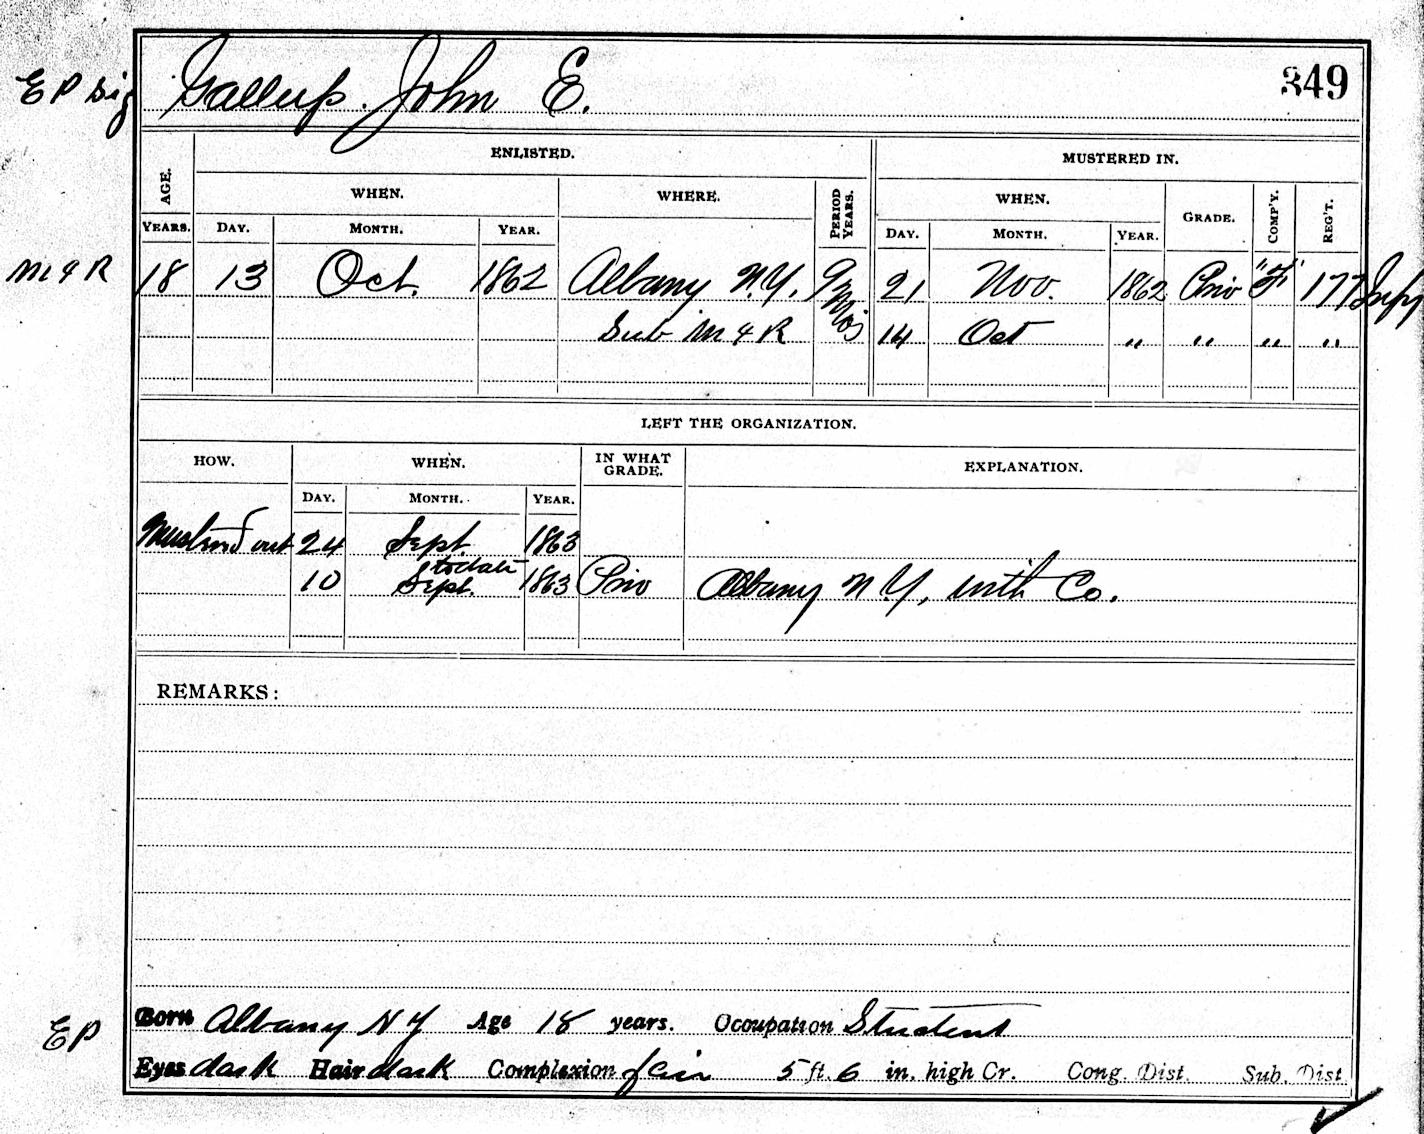 EP sig Gallup. John E. 349
ENLISTED. MUSTERED IN.
AGE. WHEN. WHERE. PERIOD YEARS. WHEN. GRADE. COMP'Y. REG'T.
YEARS. DAY. MONTH. YEAR. DAY. MONTH. YEAR.
M & R 18 13 Oct. 1862 Albany N.Y. 9 21 Nov. 1862 Priv "F" 177 Infy
Sub M & R Mos 14 Oct " " " "
LEFT THE ORGANIZATION.
HOW. WHEN. IN WHAT GRADE. EXPLANATION.
DAY. MONTH. YEAR.
Mustered out 24 Sept. 1863
to date
10 Sept. 1863 Priv Albany N Y, with Co.
REMARKS:
Born Albany N Y Age 18 years. Occupation Student
EP
Eyes dark Hair dark Complexion fair 5 ft. 6 in. high Cr. Cong. Dist. Sub. Dist